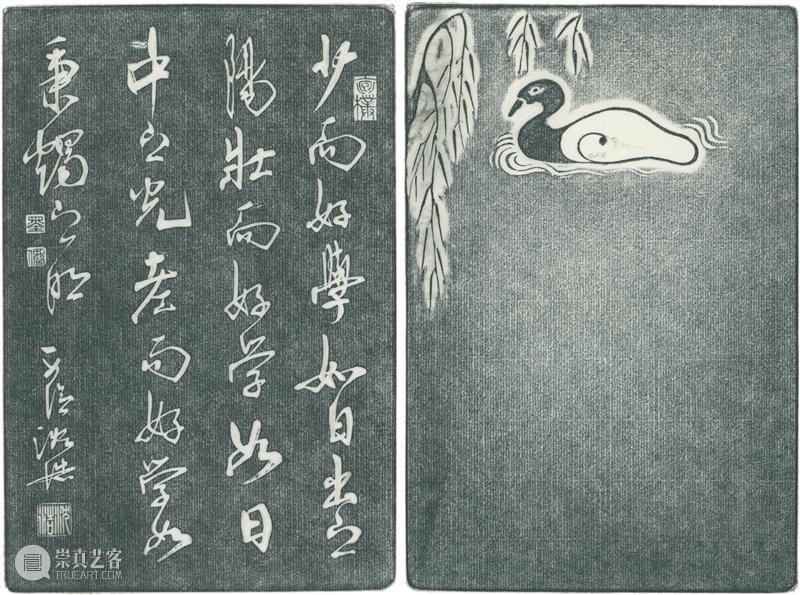 少而好學如日出之
陽壯而好学如日
中之光老而好学如
秉燭之明
崇真艺客
TRUEART.COM